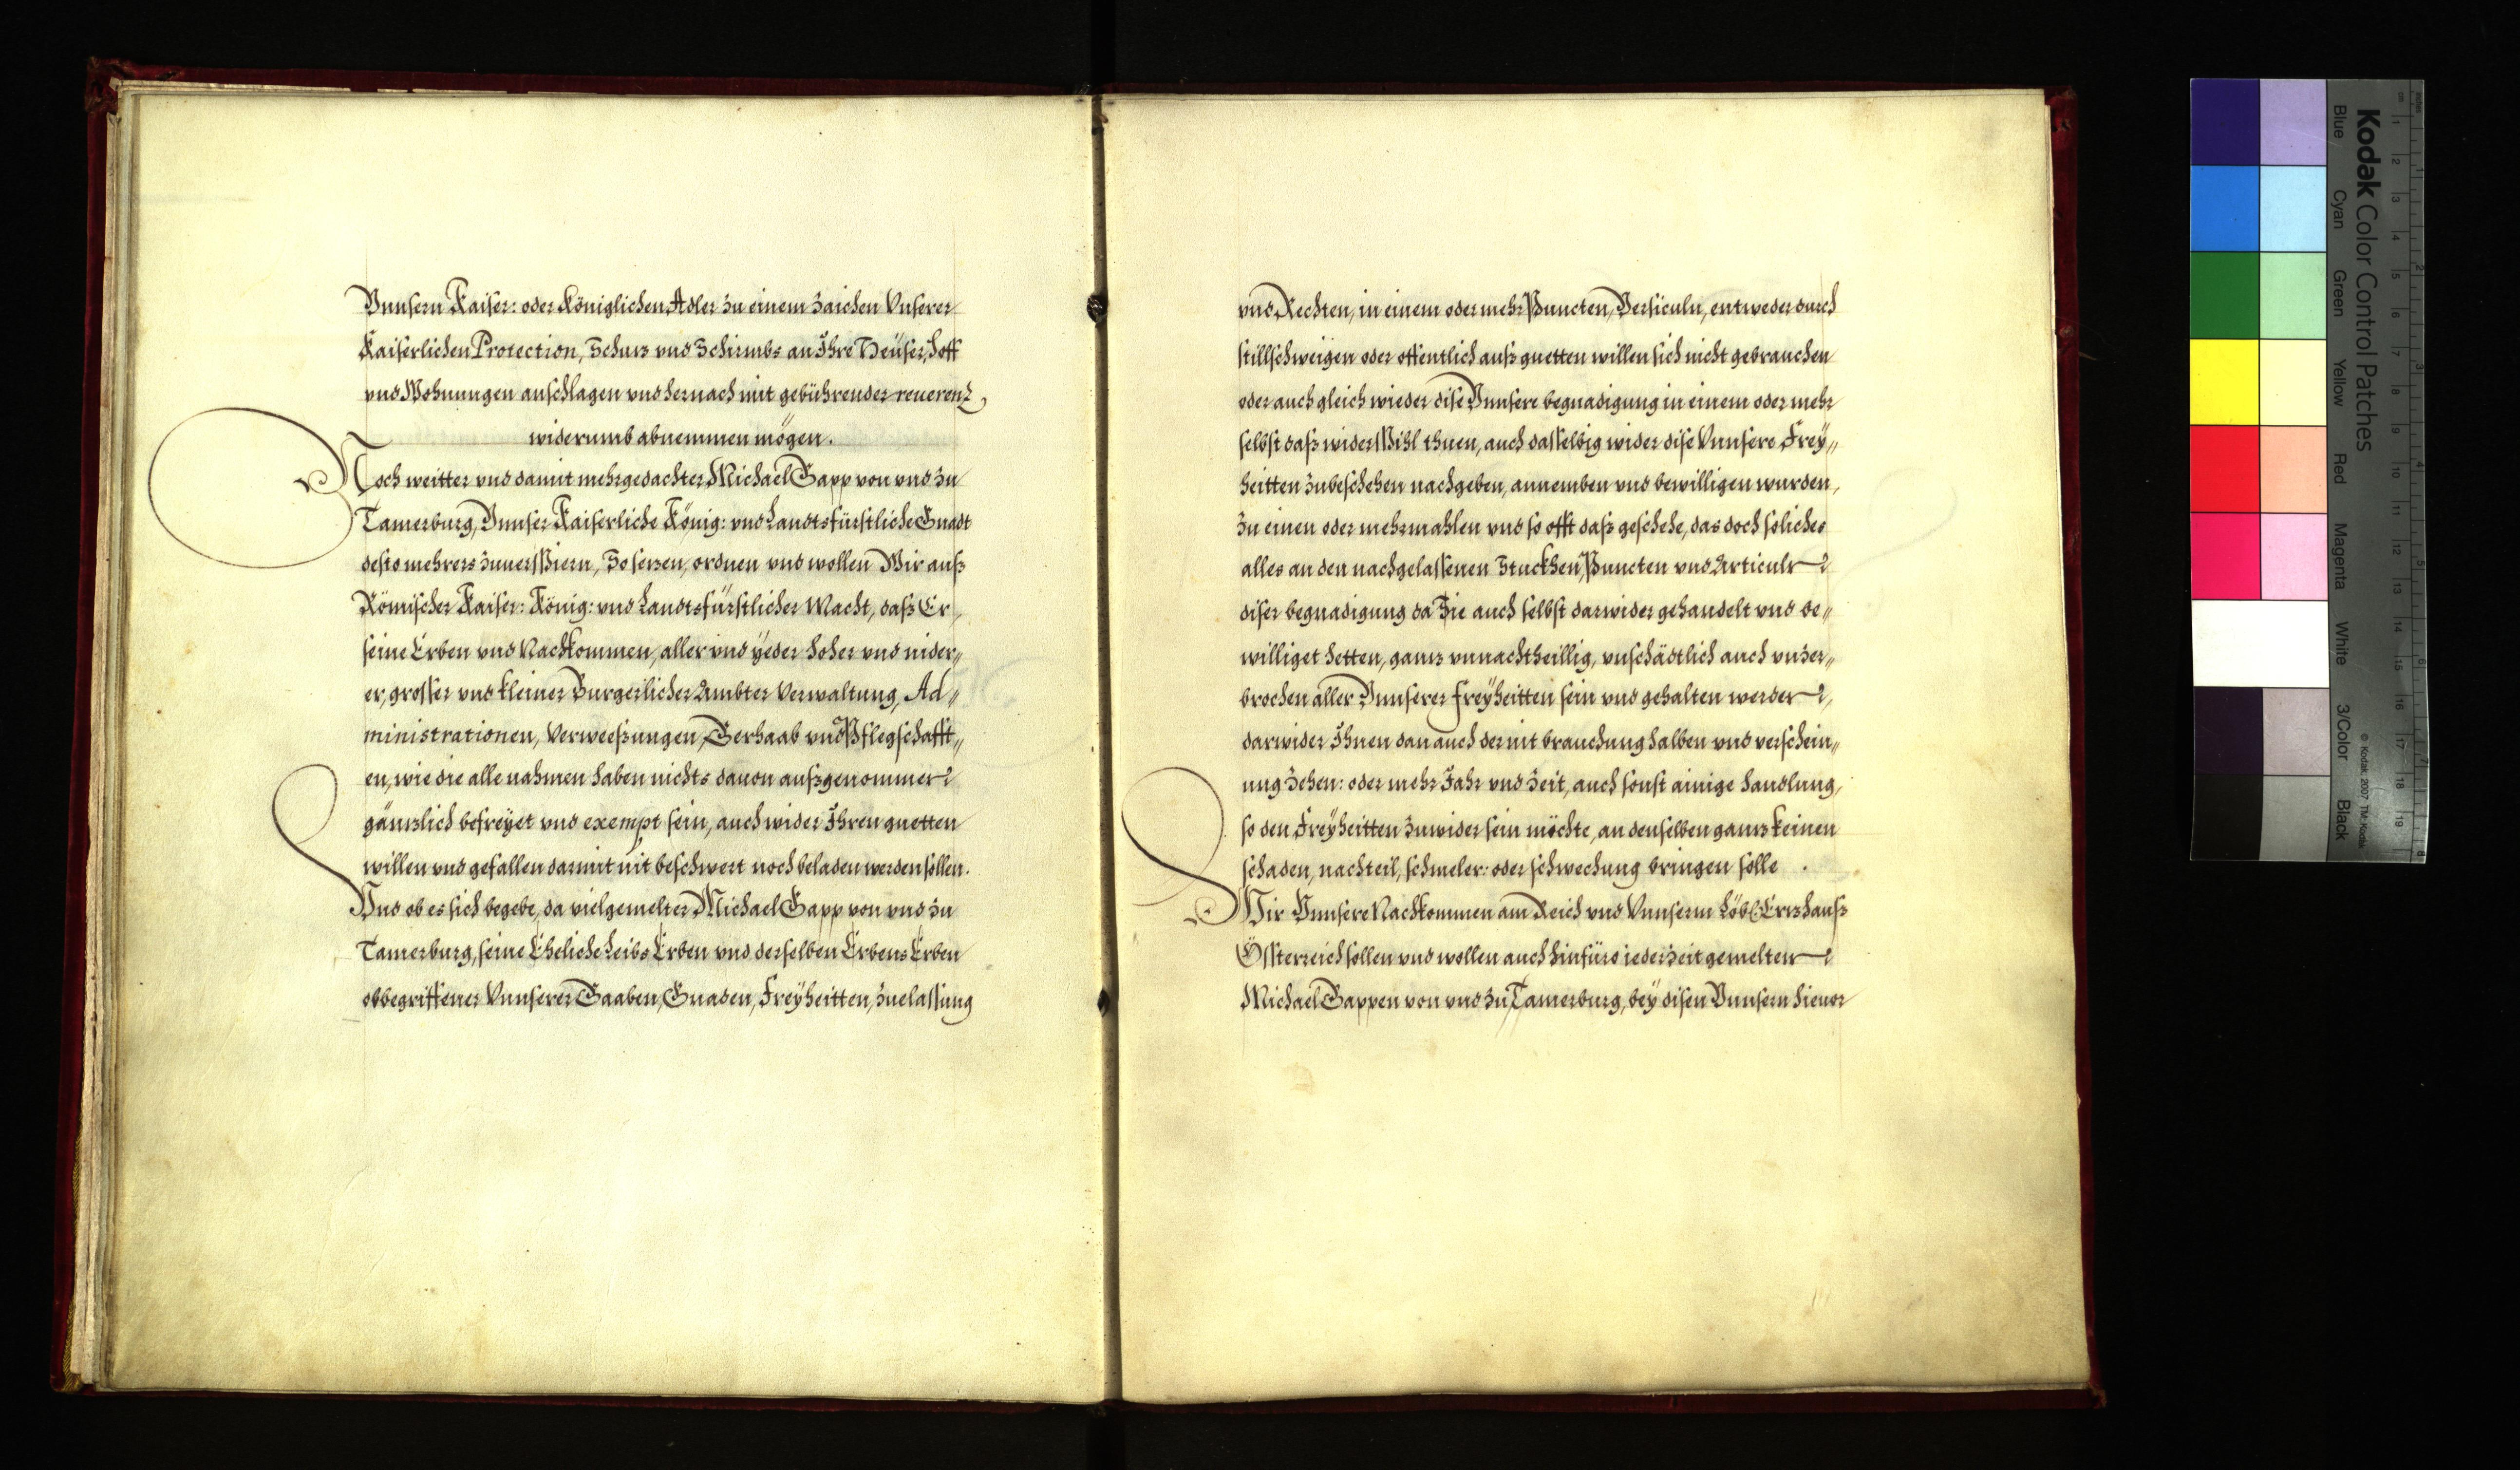 Vnnsern Kaiser: oder Königlichen Adler zu einem Zaichen Vnserer
Kaiserlichen Protection, Schutz vnd Schirmbs an Ihre Heüser, hoff
vnd Wohnungen anschlagen vnd hernach mit gebührender reuerenz
widerumb abnemmen mögen.
Noch weitter vnd damit mehrgedachter Michael Gapp von vnd zu
Tamerburg, Vnnser Kaiserliche König: vnd Landtsfürstliche Gnadt
desto mehrers zuuerspiern, So setzen, ordnen vnd wollen Wir auß
Römischer Kaiser: König: vnd Landtsfürstlicher Macht, daß Er,
seine Erben vnd Nachkommen, aller vnd ÿeder hoher vnd nider„
er, grosser vnd kleiner Burgerlicher Ambter Verwaltung, Ad„
ministrationen, Verweeßungen, Gerhaab vnd Pflegschafft„
en, wie die alle nahmen haben nichts dauon außgenommen
gäntzlich befreÿet vnd exempt sein, auch wider Ihren guetten
willen vnd gefallen darmit nit beschwert noch beladen werden sollen.
Vnd ob es sich begebe, da vielgemelter Michael Gapp von vnd zu
Tamerburg, seine Eheliche Leibs Erben vnd derselben Erbens Erben
obbegriffener Vnnserer Gaaben, Gnaden, Freÿheitten, Zuelassung
vnd Rechten, in einem oder mehr Puncten, Versiculn, entweder durch
stillschweigen oder offentlich auß guetten willen sich nicht gebrauchen
oder auch gleich wieder dise Vnnsere begnadigung in einem oder mehr
selbst daß widerspihl thuen, auch dasselbig wider dise Vnnsere Freÿ„
heitten zubeschehen nachgeben, annemben vnd bewilligen wurden,
zu einen oder mehrmahlen vnd so offt daß geschehe, das doch soliches
alles an den nachgelassenen Stuckhen, Puncten vnd Articuln
diser begnadigung da Sie auch selbst darwider gehandelt vnd be„
williget hetten, gantz vnnachtheillig, vnschädtlich auch vnzer„
brochen aller Vnnserer freÿheitten sein vnd gehalten werden,
darwider Ihnen dan auch der nit brauchung halben vnd verschein„
ung Zehen: oder mehr Jahr vnd Zeit, auch sonst ainige handlung,
so den Freÿheitten zuwider sein möchte, an denselben gantz keinen
schaden, nachteil, schmeler: oder schwechung bringen solle.
Wir Vnnsere Nachkommen am Reich vnd Vnnserm Löbl: Ertzhauß
Össterreich sollen vnd wollen auch hinfüro iederzeit gemelten
Michael Gappen von vnd zu Tamerburg, beÿ disen Vnnsern hieuor
Kodak Color Control Patches
Blue Cyan Green Yellow Red Magenta White 3/Color Black
© Kodak, 2007 TM: Kodak